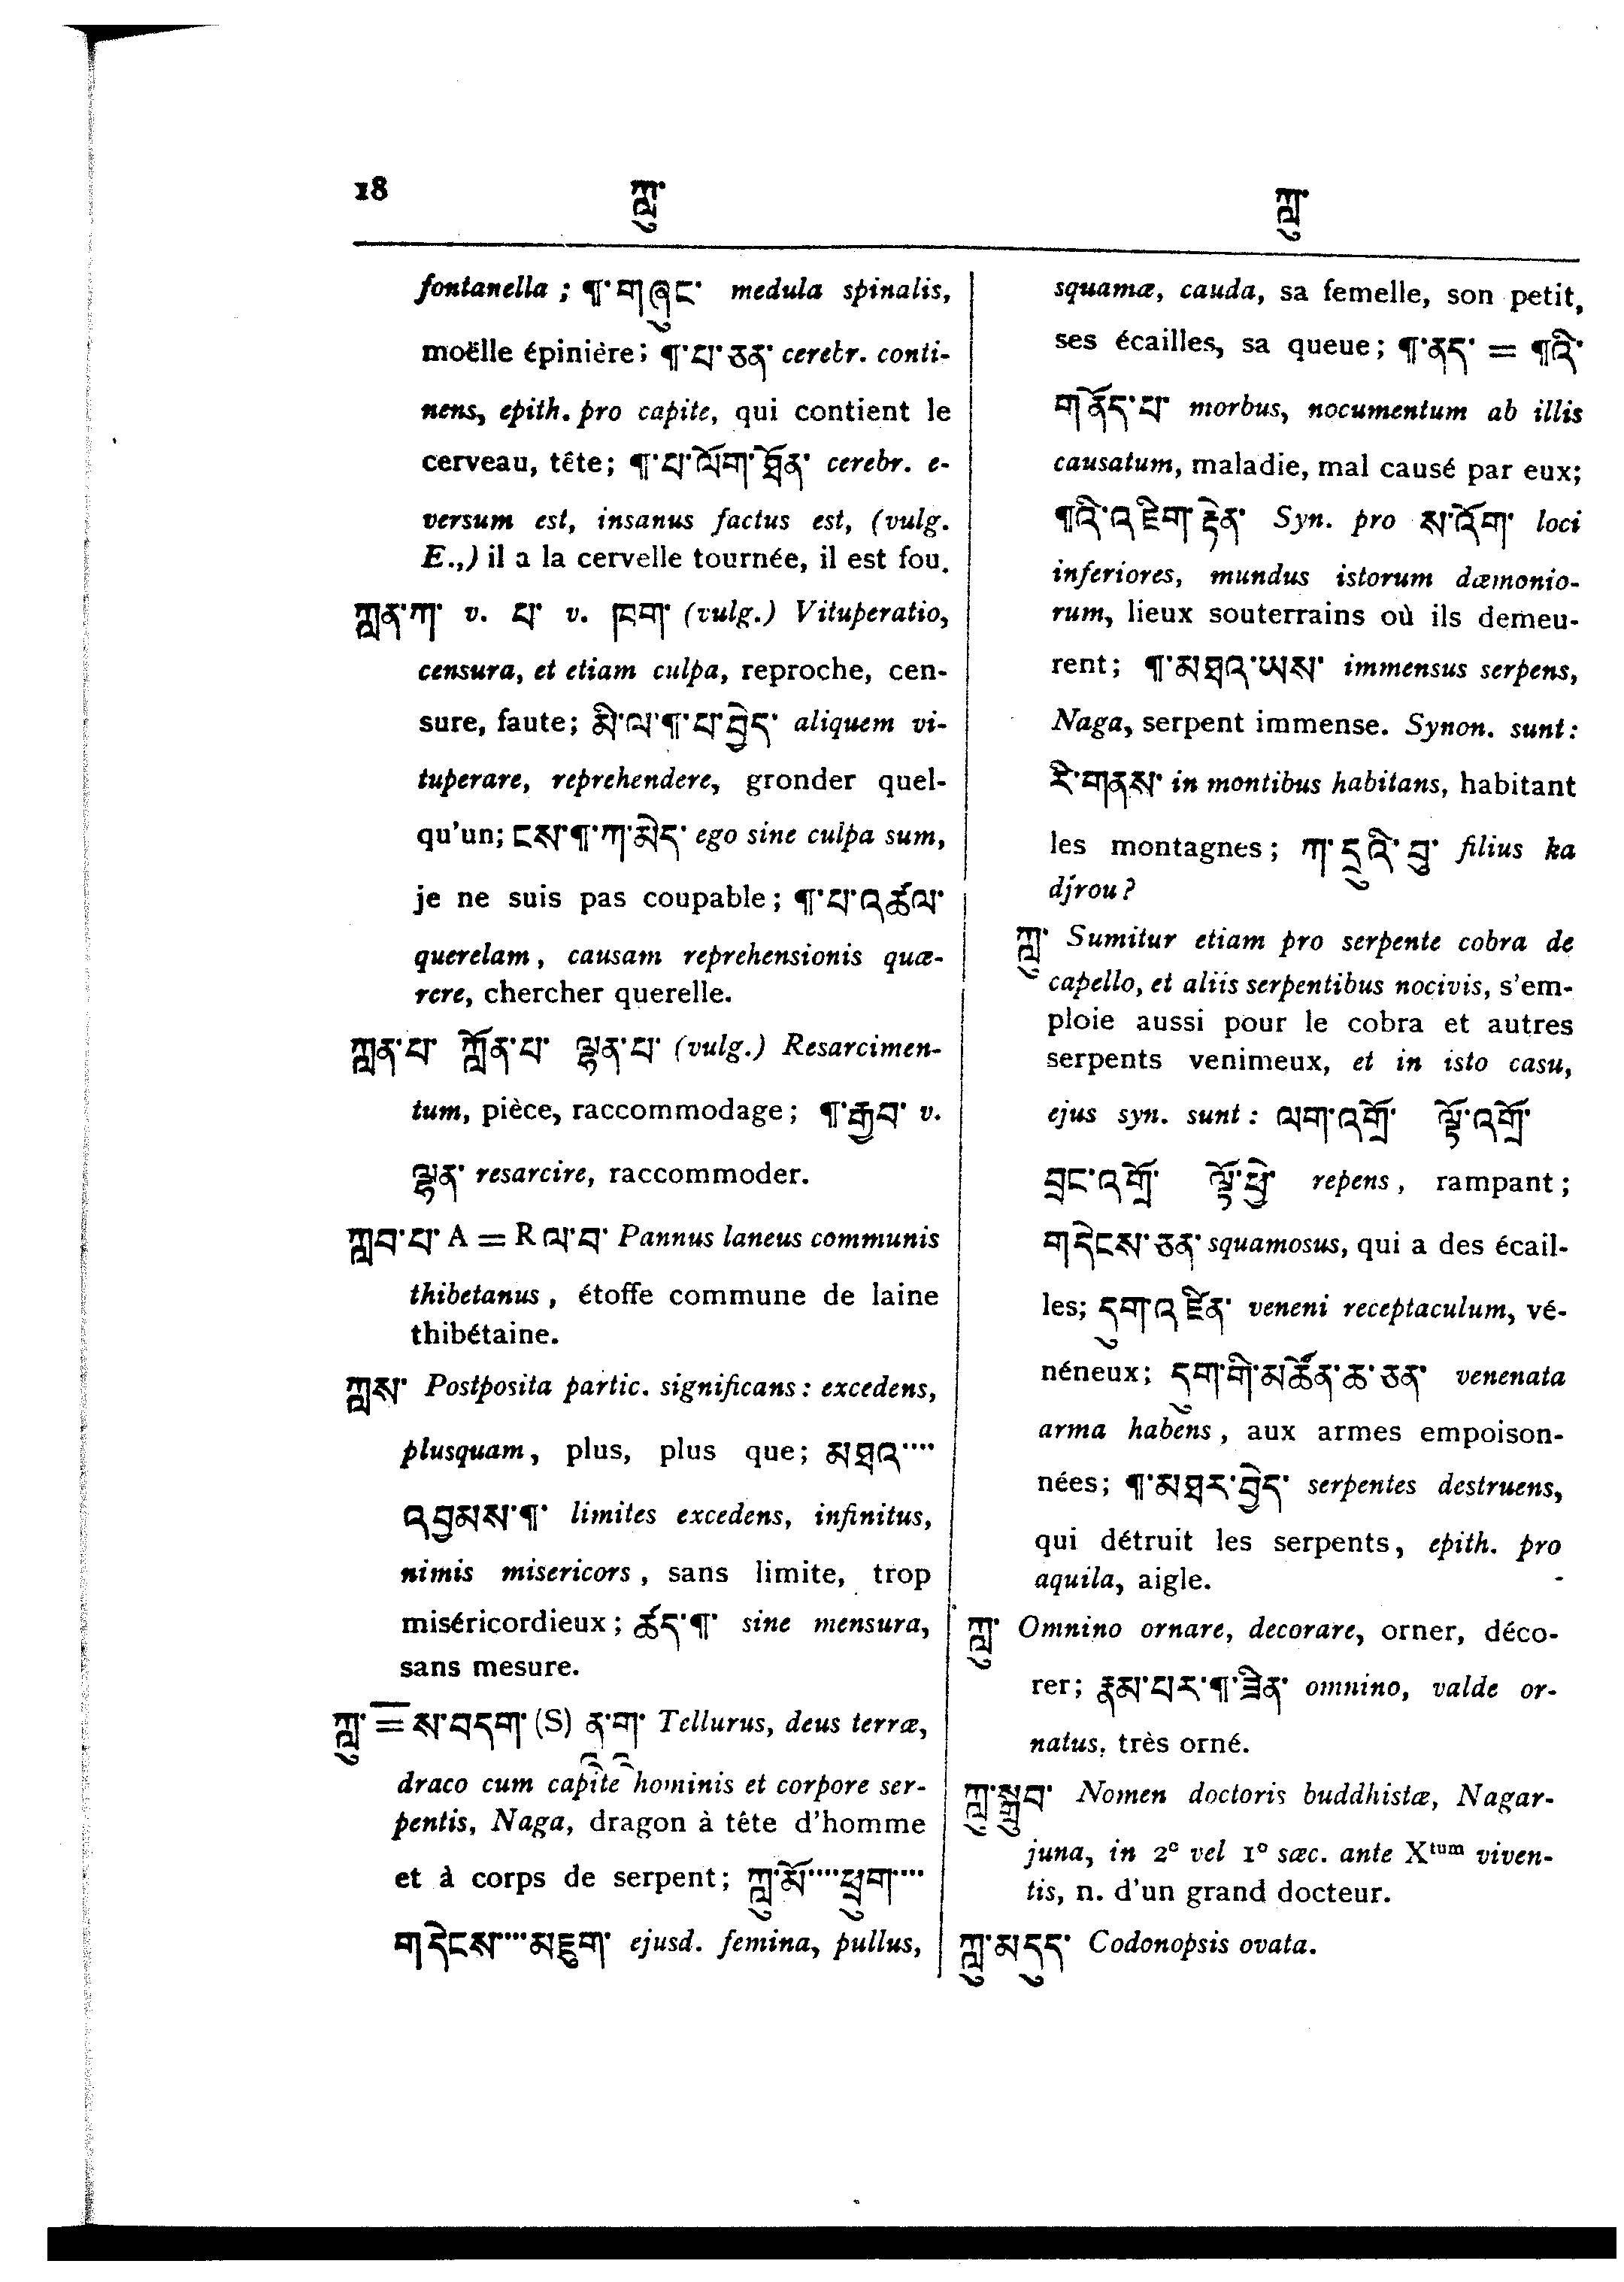 18 ཀླུ་ ཀླུ་
fontanella ; ¶་གཞུང་ medula spinalis,
moëlle épinière; ¶་པ་ཅན་ cerebr. conti-
nens, epith. pro capite, qui contient le
cerveau, tête; ¶་པ་ལོག་ཐོན་ cerebr. e-
versum est, insanus factus est, (vulg.
E.,) il a la cervelle tournée, il est fou.
ཀླན་ཀ་ v. པ་ v. ཁག་ (vulg.) Vituperatio,
censura, et etiam culpa, reproche, cen-
sure, faute; མི་ལ་¶་པ་བྱེད་ aliquem vi-
tuperare, reprehendere, gronder quel-
qu'un; ངས་¶་ཀ་མེད་ ego sine culpa sum,
je ne suis pas coupable; ¶་པ་འཚོལ་
querelam, causam reprehensionis quæ-
rere, chercher querelle.
ཀླན་པ་ ཀློན་པ་ ལྷན་པ་ (vulg.) Resarcimen-
tum, pièce, raccommodage; ¶་རྒྱབ་ v.
ལྷན་ resarcire, raccommoder.
ཀླབ་པ་ A = R ལ་བ་ Pannus laneus communis
thibetanus, étoffe commune de laine
thibétaine.
ཀླས་ Postposita partic. significans: excedens,
plusquam, plus, plus que; མཐའ་····
འབྱམས་¶་ limites excedens, infinitus,
nimis misericors, sans limite, trop
miséricordieux; ཚད་¶་ sine mensura,
sans mesure.
ཀླུ་ = ས་བདག་ (S) ན་ག་ Tellurus, deus terræ,
draco cum capite hominis et corpore ser-
pentis, Naga, dragon à tête d'homme
et à corps de serpent; ཀླུ་མོ་····ཕྲུག་····
གདེངས་····མཇུག་ ejusd. femina, pullus,
squamæ, cauda, sa femelle, son petit,
ses écailles, sa queue; ¶་ནད་ = ¶འི་
གནོད་པ་ morbus, nocumentum ab illis
causatum, maladie, mal causé par eux;
¶འི་འཇིག་རྟེན་ Syn. pro ས་འོག་ loci
inferiores, mundus istorum dæmonio-
rum, lieux souterrains où ils demeu-
rent; ¶་མཐའ་ཡས་ immensus serpens,
Naga, serpent immense. Synon. sunt:
རི་གནས་ in montibus habitans, habitant
les montagnes; ཀ་དྲུའི་བུ་ filius ka
djrou?
ཀླུ་ Sumitur etiam pro serpente cobra de
capello, et aliis serpentibus nocivis, s'em-
ploie aussi pour le cobra et autres
serpents venimeux, et in isto casu,
ejus syn. sunt: ལག་འགྲོ་ ལྟོ་འགྲོ་
བྲང་འགྲོ་ ལྟོ་ཕྱེ་ repens, rampant;
གདེངས་ཅན་ squamosus, qui a des écail-
les; དུག་འཛིན་ veneni receptaculum, vé-
néneux; དུག་གི་མཚོན་ཆ་ཅན་ venenata
arma habens, aux armes empoison-
nées; ¶་མཐར་བྱེད་ serpentes destruens,
qui détruit les serpents, epith. pro
aquila, aigle.
ཀླུ་ Omnino ornare, decorare, orner, déco-
rer; རྣམ་པར་¶་ཟིན་ omnino, valde or-
natus, très orné.
ཀླུ་སྒྲུབ་ Nomen doctoris buddhistæ, Nagar-
juna, in 2º vel 1º sæc. ante Xtum viven-
tis, n. d'un grand docteur.
ཀླུ་མདུད་ Codonopsis ovata.